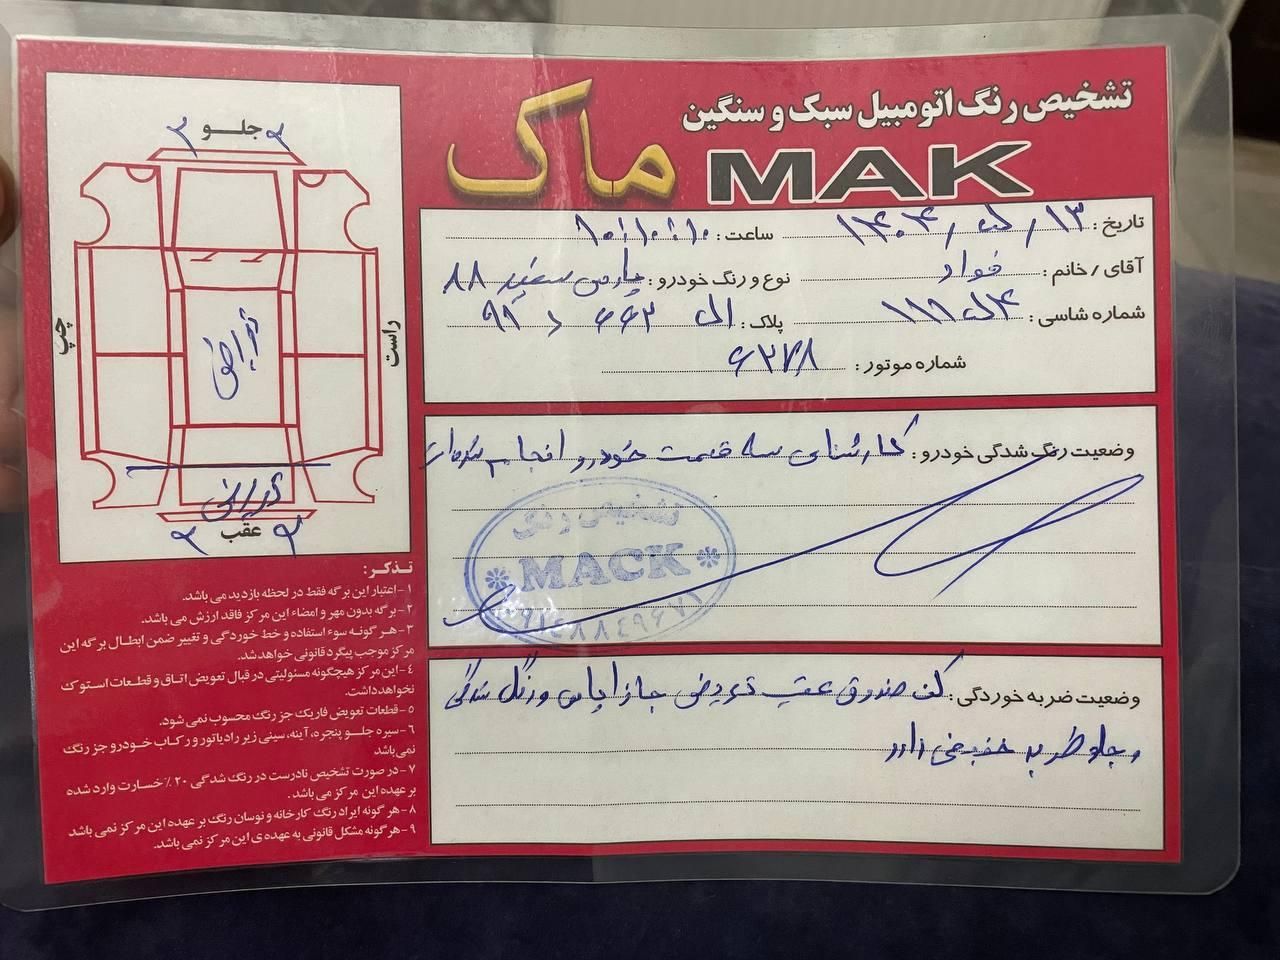 تشخیص رنگ اتومبیل سبک و سنگین
ماک
MAK
تاریخ : ۱۳ / / ۱۴۰۴
ساعت :
آقای / خانم : فواد
نوع و رنگ خودرو : پارس سفید ۸۸
شماره شاسی :
پلاک :
شماره موتور : ۶۳۷۸
وضعیت رنگ شدگی خودرو : کارشناسی سه قسمت خودرو انجام شده است
تشخیص رنگ
MACK
وضعیت ضربه خوردگی : کف صندوق عقب تعویض جازاپاس و رنگ شدگی
و جلو ضربه خفیفی دارد
جلو
چپ
راست
تعویض
تعویض
عقب
تذکر :
۱- اعتبار این برگه فقط در لحظه بازدید می باشد.
۲- برگه بدون مهر و امضاء این مرکز فاقد ارزش می باشد.
۳- هر گونه سوء استفاده و خط خوردگی و تغییر ضمن ابطال برگه این
مرکز موجب پیگرد قانونی خواهد شد.
۴- این مرکز هیچگونه مسئولیتی در قبال تعویض اتاق و قطعات استوک
نخواهد داشت.
۵- قطعات تعویض فابریک جز رنگ محسوب نمی شود.
۶- سپره جلو پنجره، آینه، سینی زیر رادیاتور و رکاب خودرو جز رنگ
نمی باشد
۷- در صورت تشخیص نادرست در رنگ شدگی ۲۰٪ خسارت وارد شده
بر عهده این مرکز می باشد.
۸- هر گونه ایراد رنگ کارخانه و نوسان رنگ بر عهده این مرکز نمی باشد
۹- هر گونه مشکل قانونی به عهده ی این مرکز نمی باشد.